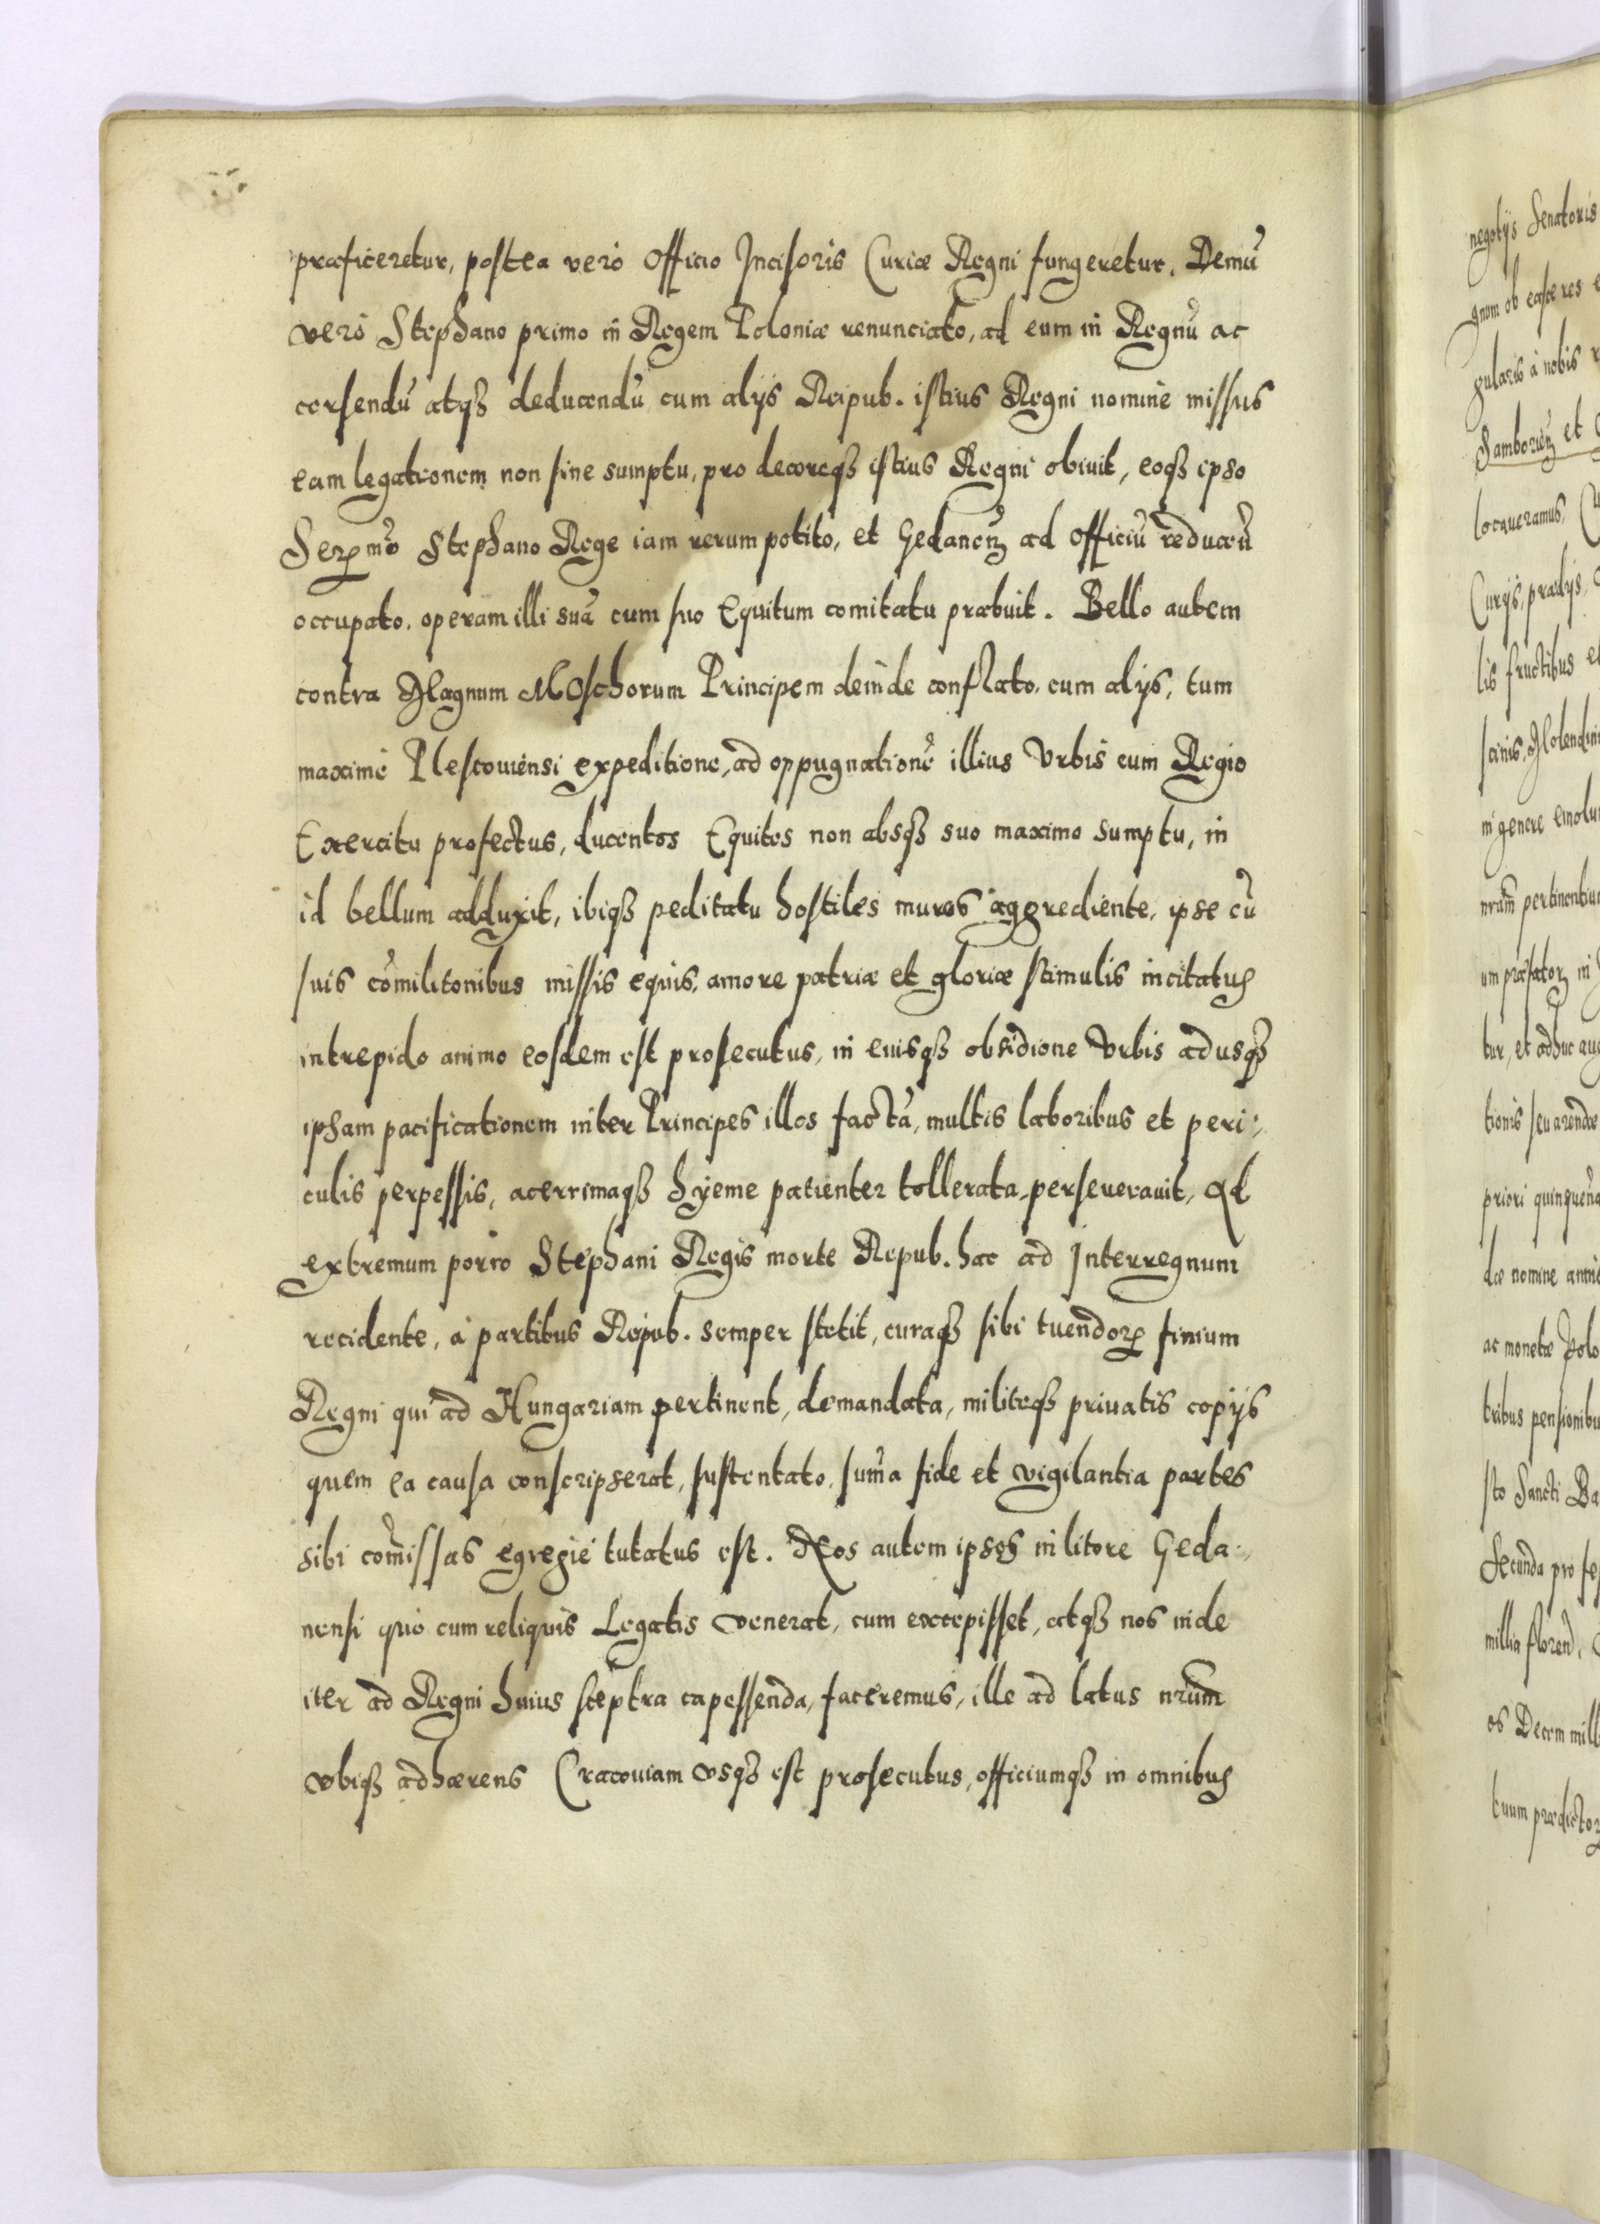 præficeretur, postea verò Officio Incisoris Curiæ Regni fungeretur. Demũ
verò Stephano primo in Regem Poloniæ renunciato, ad eum in Regnũ ac
cersendũ atq3 deducendũ cum alijs Reipub. istius Regni nomine missus
eam legationem non sine sumptu, pro decoreq3 istius Regni obiuit, eoq3 ipso
Serẽmo Stephano Rege iam rerum potito, et Gedanen3 ad Officiũ reducen̄
occupato, operam illi suã cum suo Equitum comitatu præbuit. Bello autem
contra Magnum Moschorum Principem deinde conflato, cum alijs, tum
maximè Plescouiensi expeditione, ad oppugnationẽ illius Vrbis cum Regio
Exercitu profectus, ducentos Equites non absq3 suo maximo sumptu, in
id bellum adduxit, ibiq3 peditatu hostiles muros aggrediente, ipse cũ
suis cõmilitonibus missis equis, amore patriæ et gloriæ stimulis incitatus
intrepido animo eosdem est prosecutus, in euisq3 obsidione Vrbis adusq3
ipsam pacificationem inter Principes illos factã, multis laboribus et peri-
culis perpessis, acerrimaq3 hyeme patienter tollerata perseuerauit, Ad
extremum porro Stephani Regis morte Repub. hac ad Interregnum
recidente, à partibus Reipub. semper stetit, curaq3 sibi tuendorꝝ finium
Regni qui ad Hungariam pertinent, demandata, militeq3 priuatis copijs
quem ea causa conscripserat, sustentato, sum̃a fide et vigilantia partes
sibi com̃issas egregiè tutatus est. Nos autem ipsos in litore Geda-
nensi quò cum reliquis Legatis venerat, cum excepisset, atq3 nos inde
iter ad Regni huius sceptra capessenda, faceremus, ille ad latus nrum̃
vbiq3 adhærens Cracouiam vsq3 est prosecutus, officiumq3 in omnibus
negotijs Senatoris
gnum ob easce res
gularis à nobis
Samborien3 et
locaueramus,
Curijs, prædijs,
lis fructibus et
in genere
nram̃ pertinentiu
tur, et adhuc
priori
dæ nomine
ac monetæ Polo
tribus pensionibu
sto Sancti Ba
Secunda pro
millia floren̄.
os Decem mill
tuum prædictor